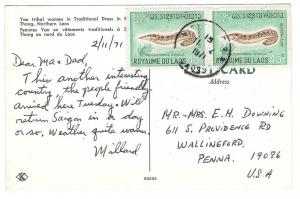 Yao tribal women in Traditional Dress in
Thong, Northern Laos
Femmes Yao en vêtements traditionels à
Thong au nord du Laos
2/11/71
Dear Ma & Dad,
This another interesting
country, the people friendly
arrived here Tuesday. Will
return Saigon in a day
or so. Weather quite warm.
Millard
ROYAUME DU LAOS
ROYAUME DU LAOS
CARD
Address
MR. & MRS. E.H. DOWNING
611 S. PROVIDENCE RD
WALLINGFORD,
PENNA. 19086
U.S.A